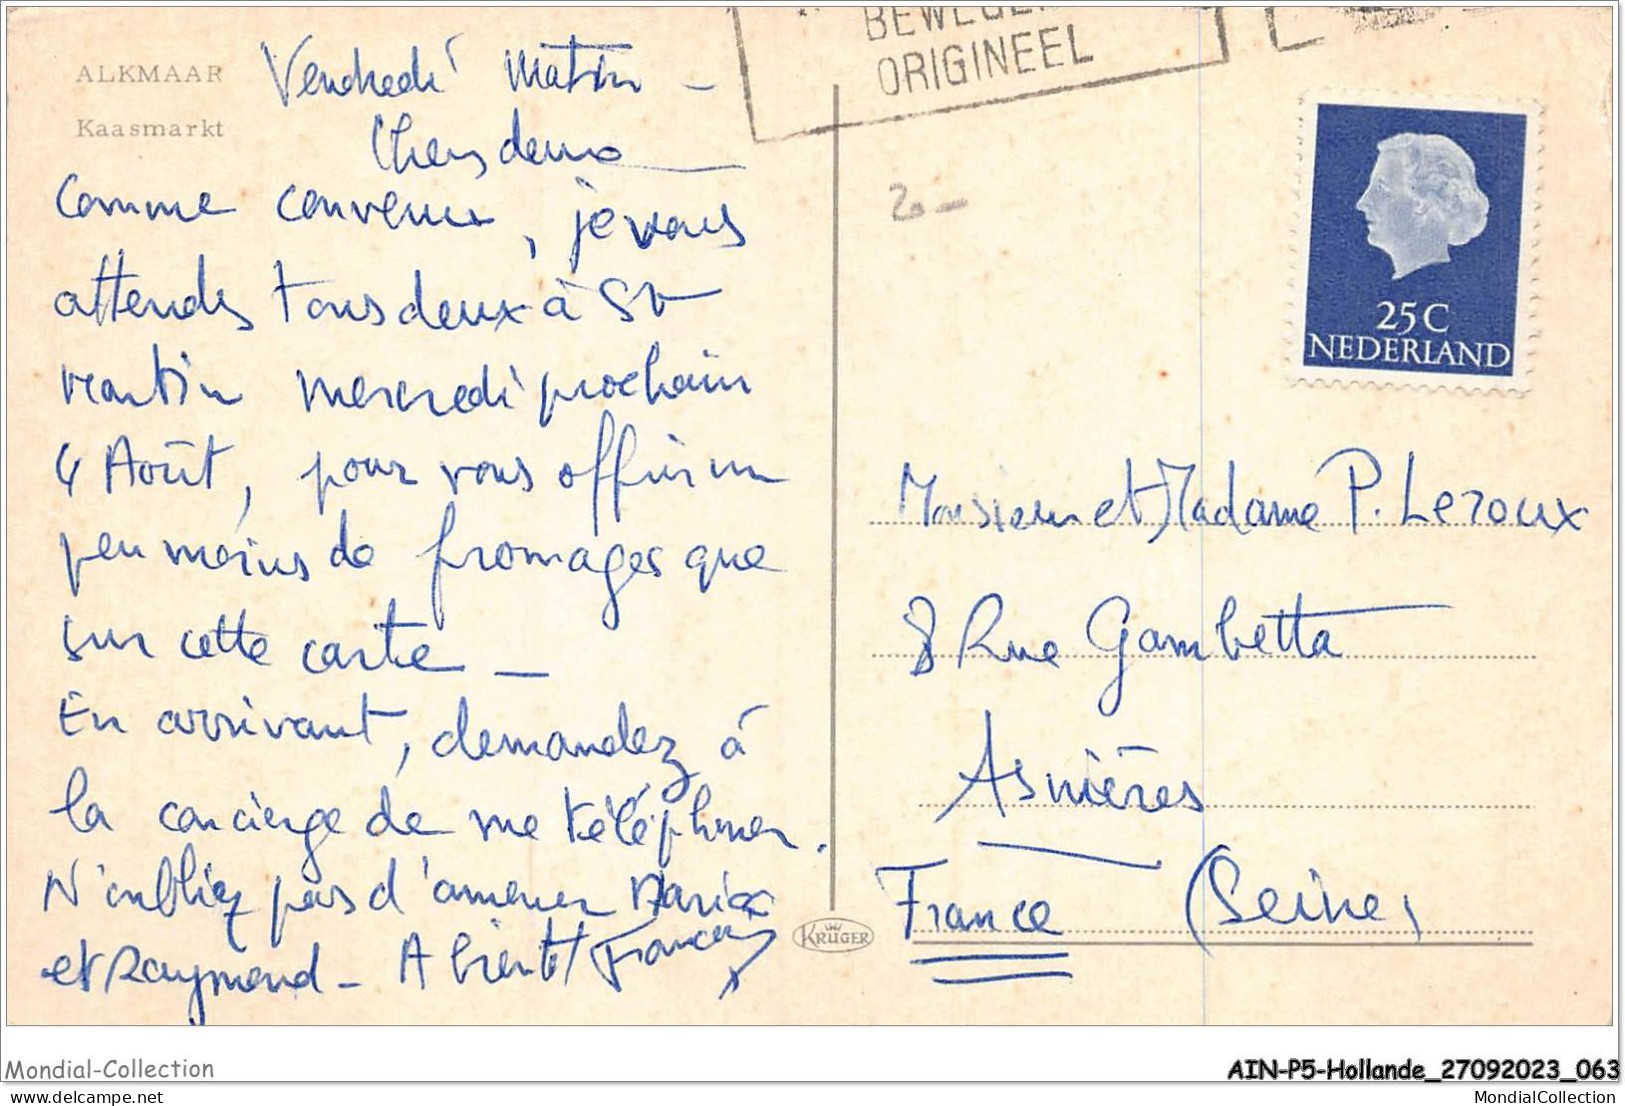 BEWEGEN
ORIGINEEL
ALKMAAR
Kaasmarkt
Vendredi Matin -
Chers deux
Comme convenu, je vous
attends tous deux à St
Martin Mercredi prochain
4 Août, pour vous offrir un
peu moins de fromages que
sur cette carte -
En arrivant, demandez à
la concierge de me téléphoner.
N'oubliez pas d'amener
et Raymond - A bientôt
25 C
NEDERLAND
20 -
Monsieur et Madame P. Leroux
8 Rue Gambetta
Asnières
France (Seine)
KRÜGER
Mondial-Collection
AIN-P5-Hollande_27092023_063
delcampe.net
MondialCollection